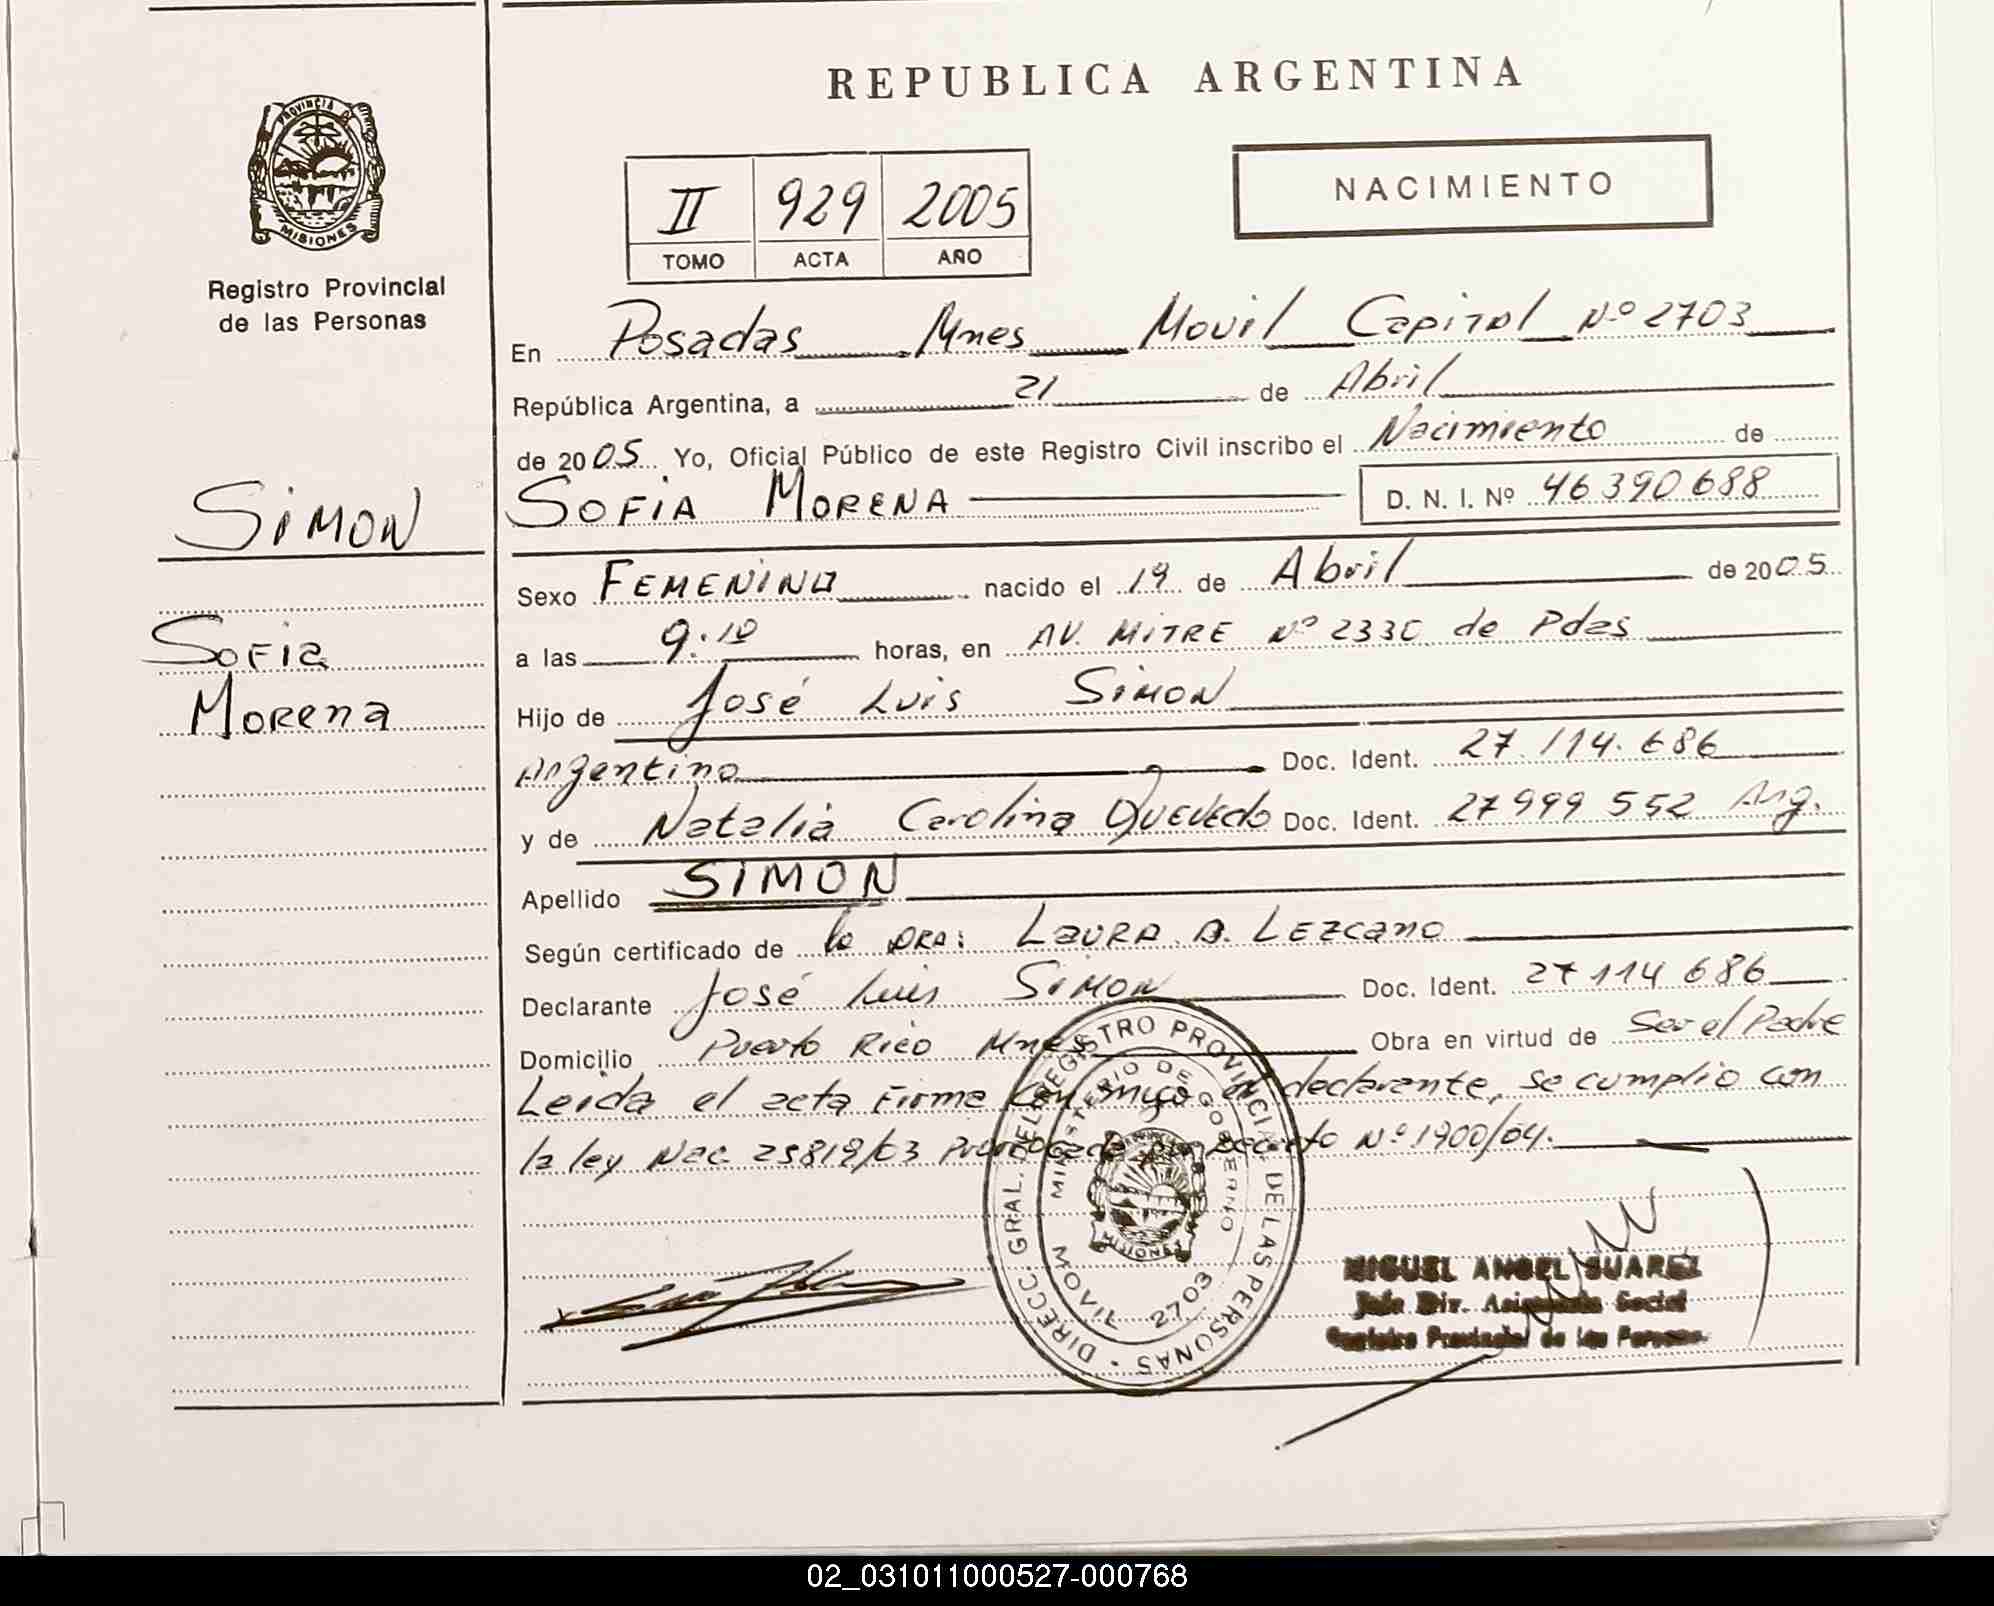 REPUBLICA ARGENTINA
PROVINCIA DE
MISIONES
Registro Provincial
de las Personas
II 929 2005
TOMO ACTA AÑO
NACIMIENTO
En Posadas Mnes Movil Capital Nº 2703
República Argentina, a 21 de Abril
de 2005 Yo, Oficial Público de este Registro Civil inscribo el Nacimiento de
SIMON
SOFIA MORENA D. N. I. Nº 46390688
Sexo FEMENINO nacido el 19 de Abril de 2005
SOFIA
MORENA
a las 9.10 horas, en AV. MITRE Nº 2330 de Pdas
Hijo de José Luis SIMON
Argentino Doc. Ident. 27.114.686
y de Natalia Carolina QUEVEDO Doc. Ident. 27999552 Arg.
Apellido SIMON
Según certificado de la DRA: LAURA B. LEZCANO
Declarante José Luis SIMON Doc. Ident. 27114686
Domicilio Puerto Rico Mnes Obra en virtud de Ser el Padre
Leida el acta Firma conmigo el declarante, se cumplio con
la ley Nac 25819/03 por Decreto Nº 1900/04.
DIRECC. GRAL. DEL REGISTRO PROVINCIAL DE LAS PERSONAS
MINISTERIO DE GOBIERNO
MISIONES
MOVIL 2703
MIGUEL ANGEL SUAREZ
Jefe Dir. Asistencia Social
Registro Provincial de las Personas
02_031011000527-000768